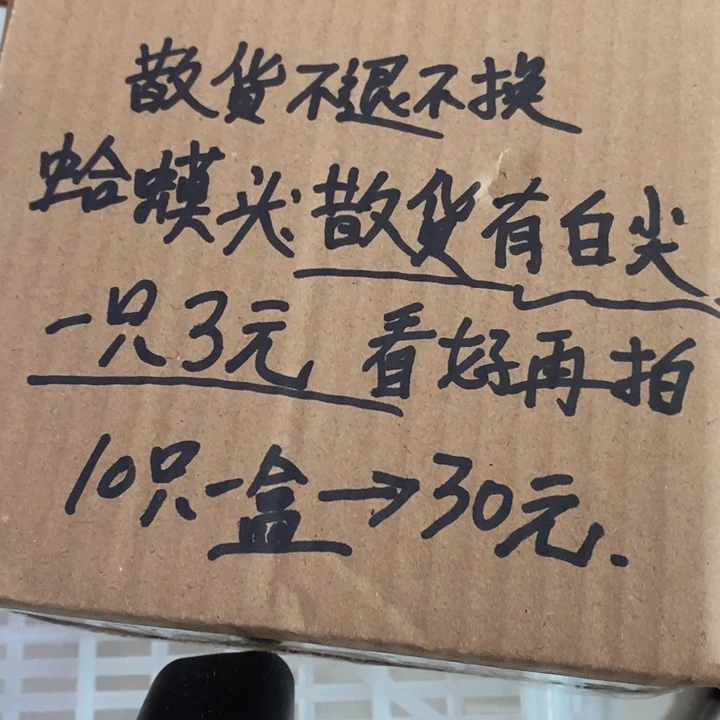 散货不退不换
蛤蟆头散货有白尖
一只3元 看好再拍
10只一盒→30元.